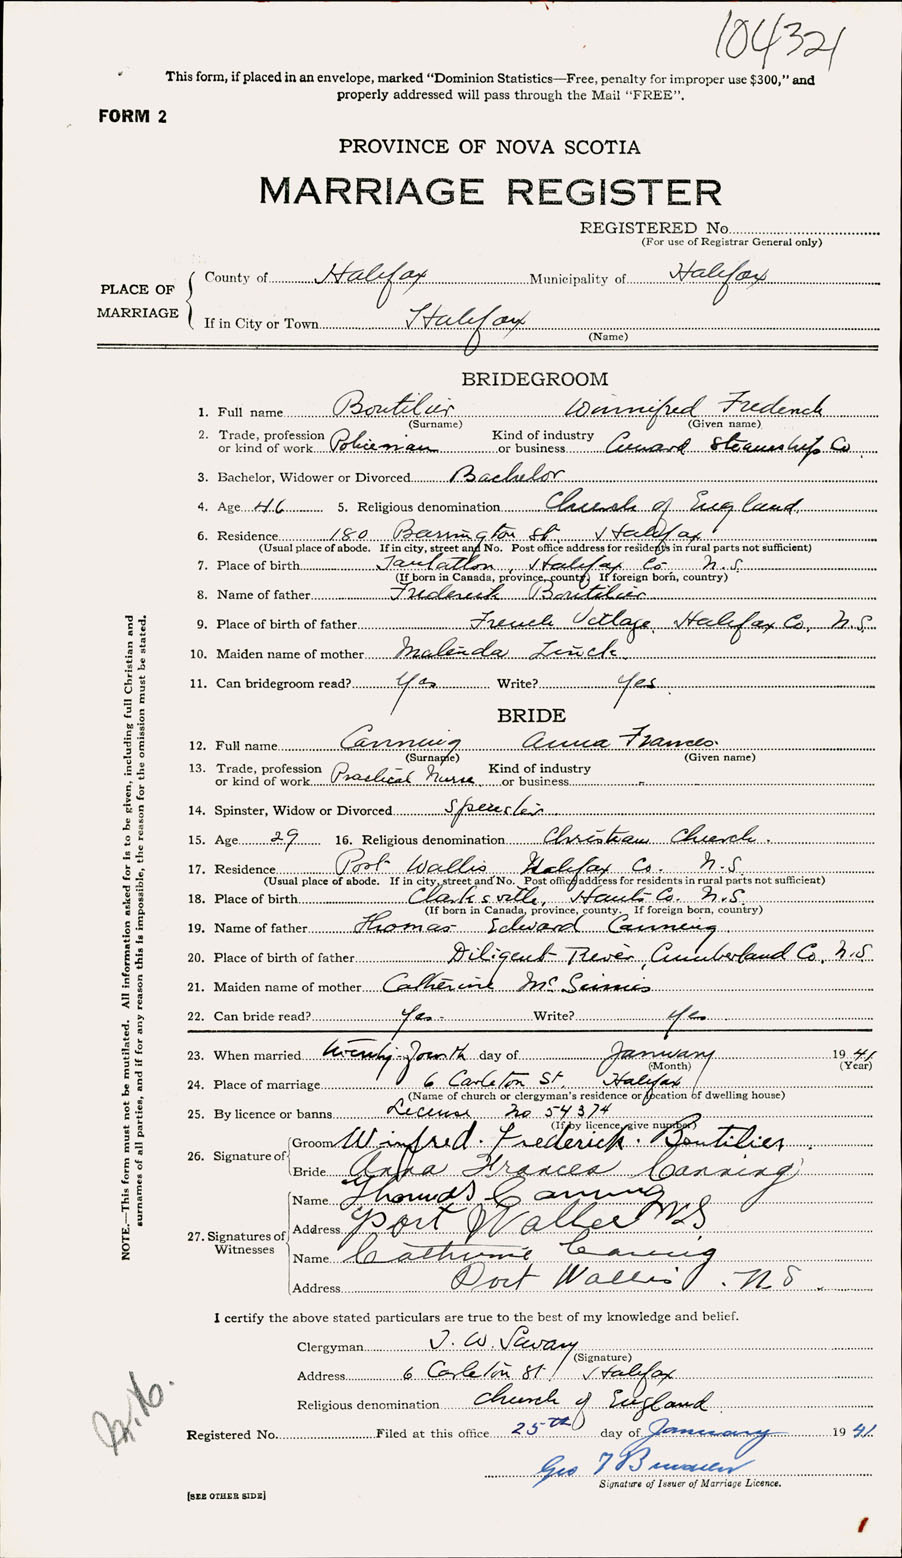 104321
This form, if placed in an envelope, marked "Dominion Statistics—Free, penalty for improper use $300," and
properly addressed will pass through the Mail "FREE".
FORM 2
PROVINCE OF NOVA SCOTIA
MARRIAGE REGISTER
REGISTERED No.
(For use of Registrar General only)
PLACE OF MARRIAGE
County of Halifax Municipality of Halifax
If in City or Town Halifax
(Name)
BRIDEGROOM
1. Full name Boutilier Winnifred Frederick
(Surname) (Given name)
2. Trade, profession or kind of work Policeman Kind of industry or business Cunard Steamship Co
3. Bachelor, Widower or Divorced Bachelor
4. Age 46 5. Religious denomination Church of England
6. Residence 180 Barrington St. Halifax
(Usual place of abode. If in city, street and No. Post office address for residents in rural parts not sufficient)
7. Place of birth Tantallon, Halifax Co N.S.
(If born in Canada, province, county. If foreign born, country)
8. Name of father Frederick Boutilier
9. Place of birth of father French Village, Halifax Co, N.S.
10. Maiden name of mother Malinda
11. Can bridegroom read? Yes Write? Yes
BRIDE
12. Full name Canning Anna Frances
(Surname) (Given name)
13. Trade, profession or kind of work Practical Nurse Kind of industry or business -
14. Spinster, Widow or Divorced Spinster
15. Age 29 16. Religious denomination Christian Church.
17. Residence Port Wallis Halifax Co. N.S.
(Usual place of abode. If in city, street and No. Post office address for residents in rural parts not sufficient)
18. Place of birth Clarksville, Hants Co. N.S.
(If born in Canada, province, county. If foreign born, country)
19. Name of father Thomas Edward Canning
20. Place of birth of father Diligent River, Cumberland Co, N.S
21. Maiden name of mother Catherine
22. Can bride read? Yes - Write? Yes
23. When married twenty-fourth day of January 1941
(Month) (Year)
24. Place of marriage 6 Carleton St. Halifax
(Name of church or clergyman's residence or location of dwelling house)
25. By licence or banns License No 54374
(If by licence, give number)
26. Signature of
Groom Winfred. Frederick. Boutilier.
Bride Anna Frances Canning
27. Signatures of Witnesses
Name Thomas Canning
Address Port Wallis NS
Name Catherine Canning
Address Port Wallis. N S.
I certify the above stated particulars are true to the best of my knowledge and belief.
Clergyman T. W. Savary
(Signature)
Address 6 Carleton St. Halifax
Religious denomination Church of England
Registered No. Filed at this office 25th day of January 1941
Geo
Signature of Issuer of Marriage Licence.
[SEE OTHER SIDE]
NOTE.—This form must not be mutilated. All information asked for is to be given, including full Christian and
surnames of all parties, and if for any reason this is impossible, the reason for the omission must be stated.